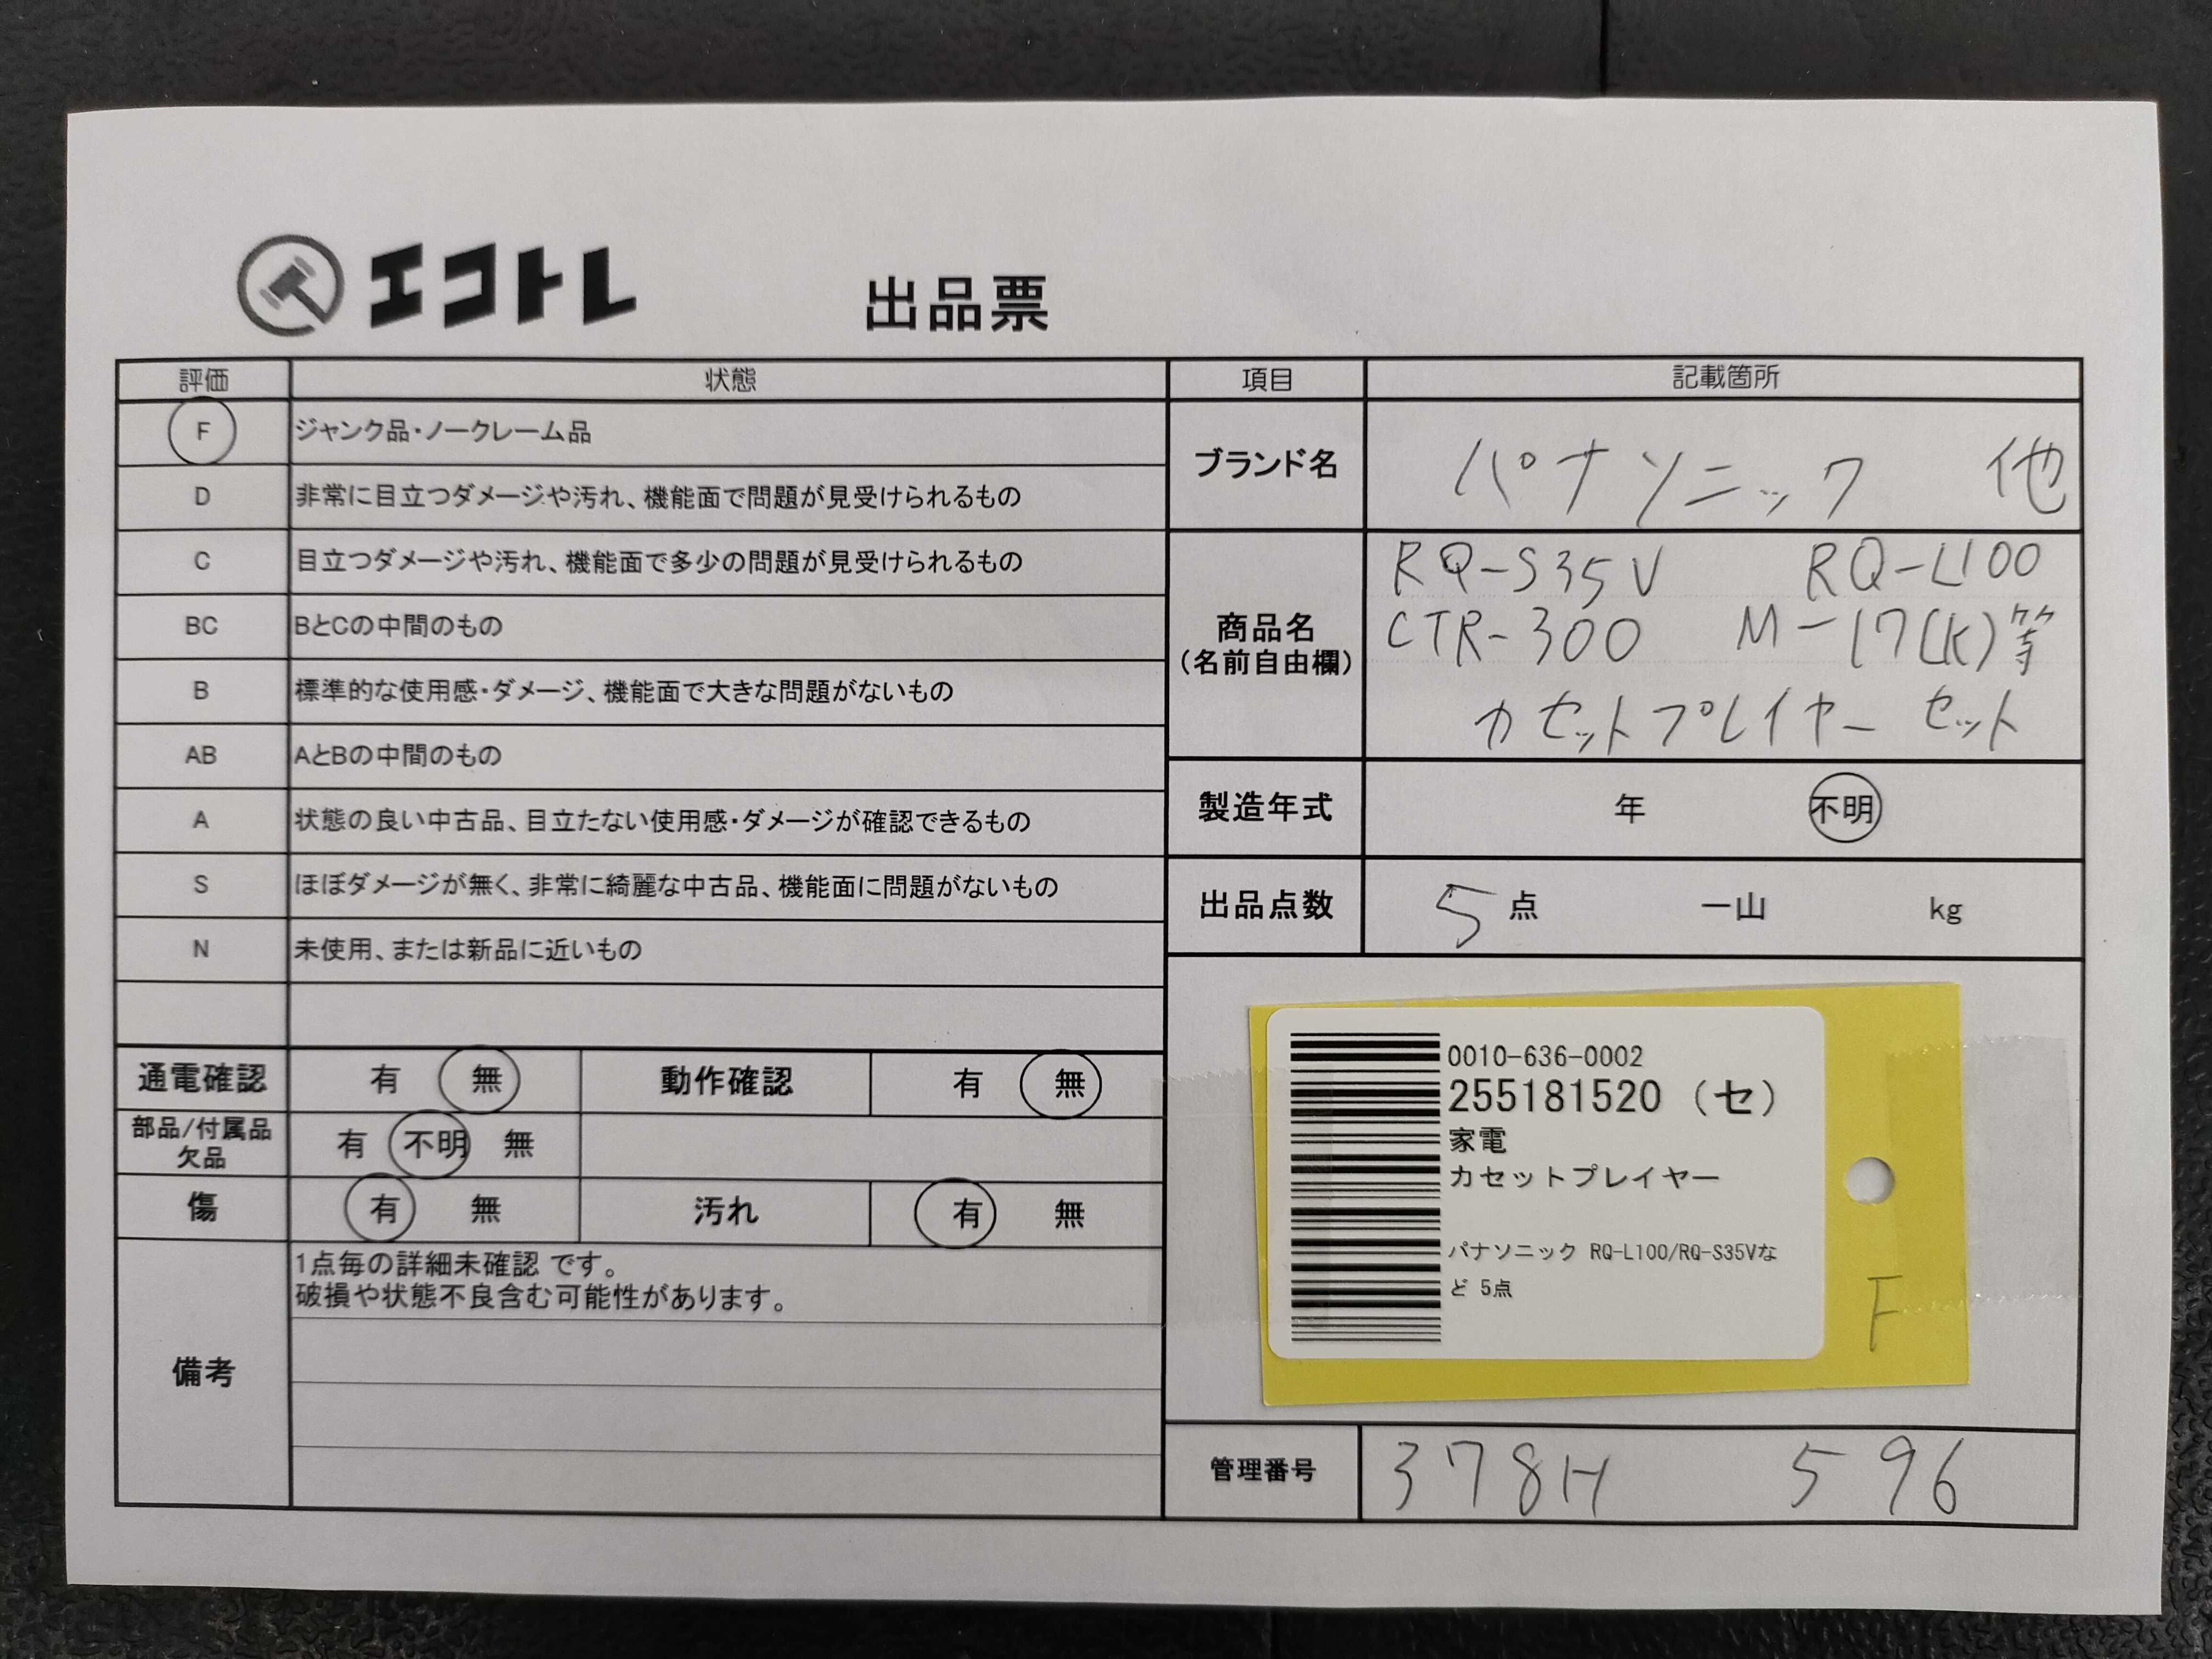 エコトレ
出品票
評価 状態
F ジャンク品・ノークレーム品
D 非常に目立つダメージや汚れ、機能面で問題が見受けられるもの
C 目立つダメージや汚れ、機能面で多少の問題が見受けられるもの
BC BとCの中間のもの
B 標準的な使用感・ダメージ、機能面で大きな問題がないもの
AB AとBの中間のもの
A 状態の良い中古品、目立たない使用感・ダメージが確認できるもの
S ほぼダメージが無く、非常に綺麗な中古品、機能面に問題がないもの
N 未使用、または新品に近いもの
通電確認 有 無 動作確認 有 無
部品/付属品
欠品
有 不明 無
傷 有 無 汚れ 有 無
備考
1点毎の詳細未確認 です。
破損や状態不良含む可能性があります。
項目 記載箇所
ブランド名 パナソニック 他
商品名
(名前自由欄)
RQ-S35V RQ-L100
CTR-300 M-17(K)等
カセットプレイヤー セット
製造年式 年 不明
出品点数 5点 一山 kg
0010-636-0002
255181520 (セ)
家電
カセットプレイヤー
パナソニック RQ-L100/RQ-S35Vな
ど 5点
F
管理番号 378H 596